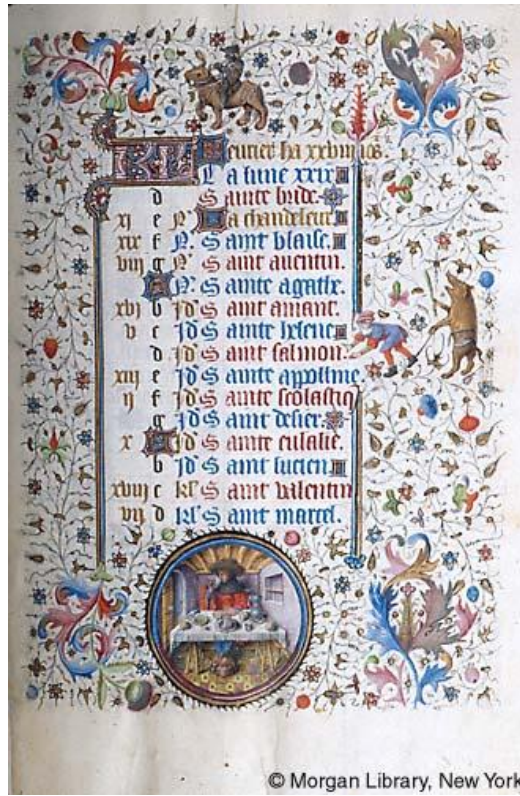 KL feurier ha xxviii ios
La lune xxix
d Sainte bride.
xj e N. La chandeleur
xix f N. Saint blaise.
viij g N. Saint auentin.
A N. Sainte agathe.
xvj b Jd Saint amant.
v c Jd Sainte helene
d Jd Saint salmon.
xiij e Jd Sainte appoline
ij f Jd Sainte scolastiq
g Jd Saint desier.
x A Jd Sainte eulalie.
b Jd Saint lucien
xviij c kl Saint valentin
vij d kl Saint marcel.
© Morgan Library, New York